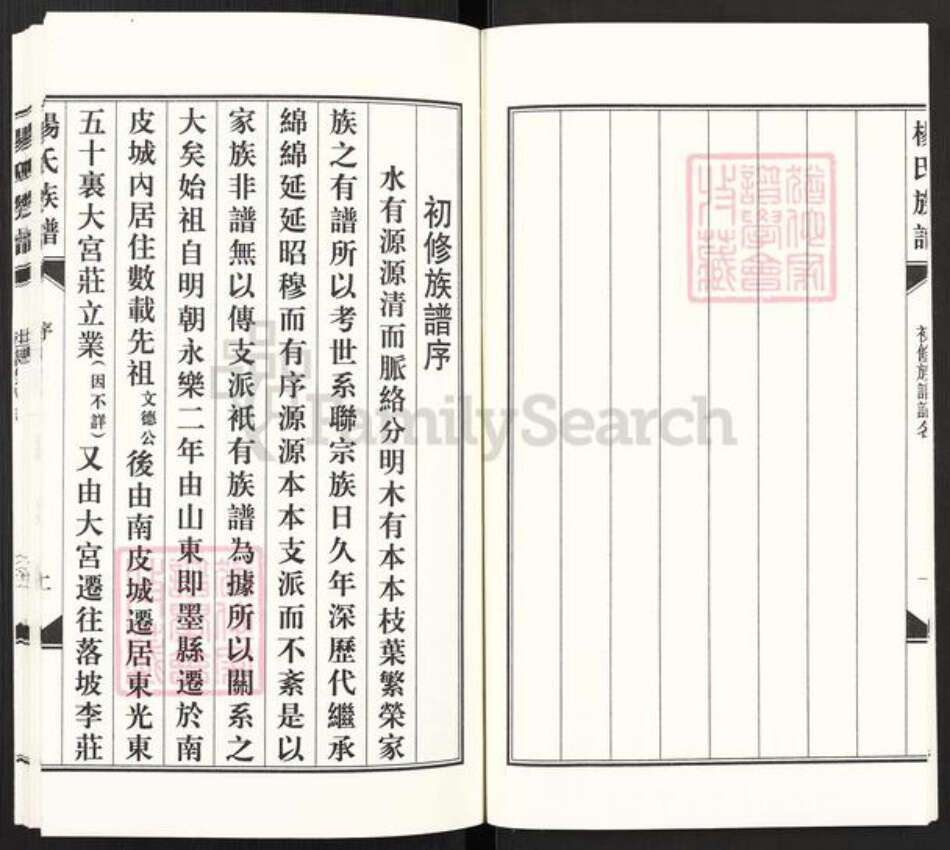 楊氏族譜
初修族譜譜名
一
猶他家
譜學會
收藏
初修族譜序
水有源源清而脈絡分明木有本本枝葉繁榮家
族之有譜所以考世系聯宗族日久年深歷代繼承
綿綿延延昭穆而有序源源本本支派而不紊是以
家族非譜無以傳支派祇有族譜為據所以關系之
大矣始祖自明朝永樂二年由山東即墨縣遷於南
皮城內居住數載先祖文德公後由南皮城遷居東光東
五十裏大宮莊立業(因不詳)又由大宮遷往落坡李莊
楊氏族譜
序
FamilySearch